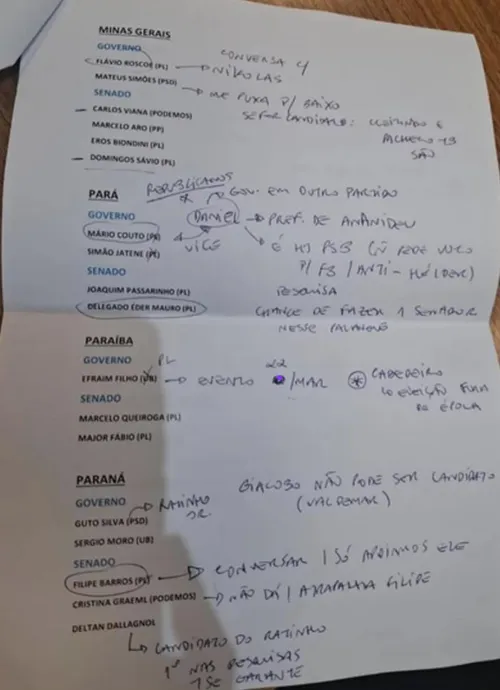 MINAS GERAIS
GOVERNO
FLÁVIO ROSCOE (PL) → CONVERSA C/ NIKOLAS
MATEUS SIMÕES (PSD) → ME PUXA P/ BAIXO
SENADO
SE FOR CANDIDATO: CLEITINHO E
CARLOS VIANA (PODEMOS)
PACHECO
SÃO
MARCELO ARO (PP)
EROS BIONDINI (PL)
DOMINGOS SÁVIO (PL)
PARÁ
REPUBLICANOS
GOV. EM OUTRO PARTIDO
GOVERNO
DANIEL → PREF. DE ANANINDEU
MÁRIO COUTO (PL)
VICE
É HJ PSB
SIMÃO JATENE
P/ FB / ANTI-HELDER)
SENADO
PESQUISA
JOAQUIM PASSARINHO (PL)
CHANCE DE FAZER 1 SENADOR
DELEGADO ÉDER MAURO (PL)
NESSE PALANQUE
PARAÍBA
GOVERNO PL
EFRAIM FILHO (UB) → EVENTO /MAR
CABEDELO
ELEIÇÃO FORA
DE ÉPOCA
SENADO
MARCELO QUEIROGA (PL)
MAJOR FÁBIO (PL)
PARANÁ
GIACOBO NÃO PODE SER CANDIDATO
GOVERNO
(VALDEMAR)
GUTO SILVA (PSD) → RATINHO JR.
SERGIO MORO (UB)
SENADO
FILIPE BARROS (PL) → CONVERSAR / SÓ APOIAMOS ELE
CRISTINA GRAEML (PODEMOS) → NÃO DÁ / ATRAPALHA FILIPE
DELTAN DALLAGNOL
CANDIDATO DO RATINHO
1º NAS PESQUISAS
SE GARANTE